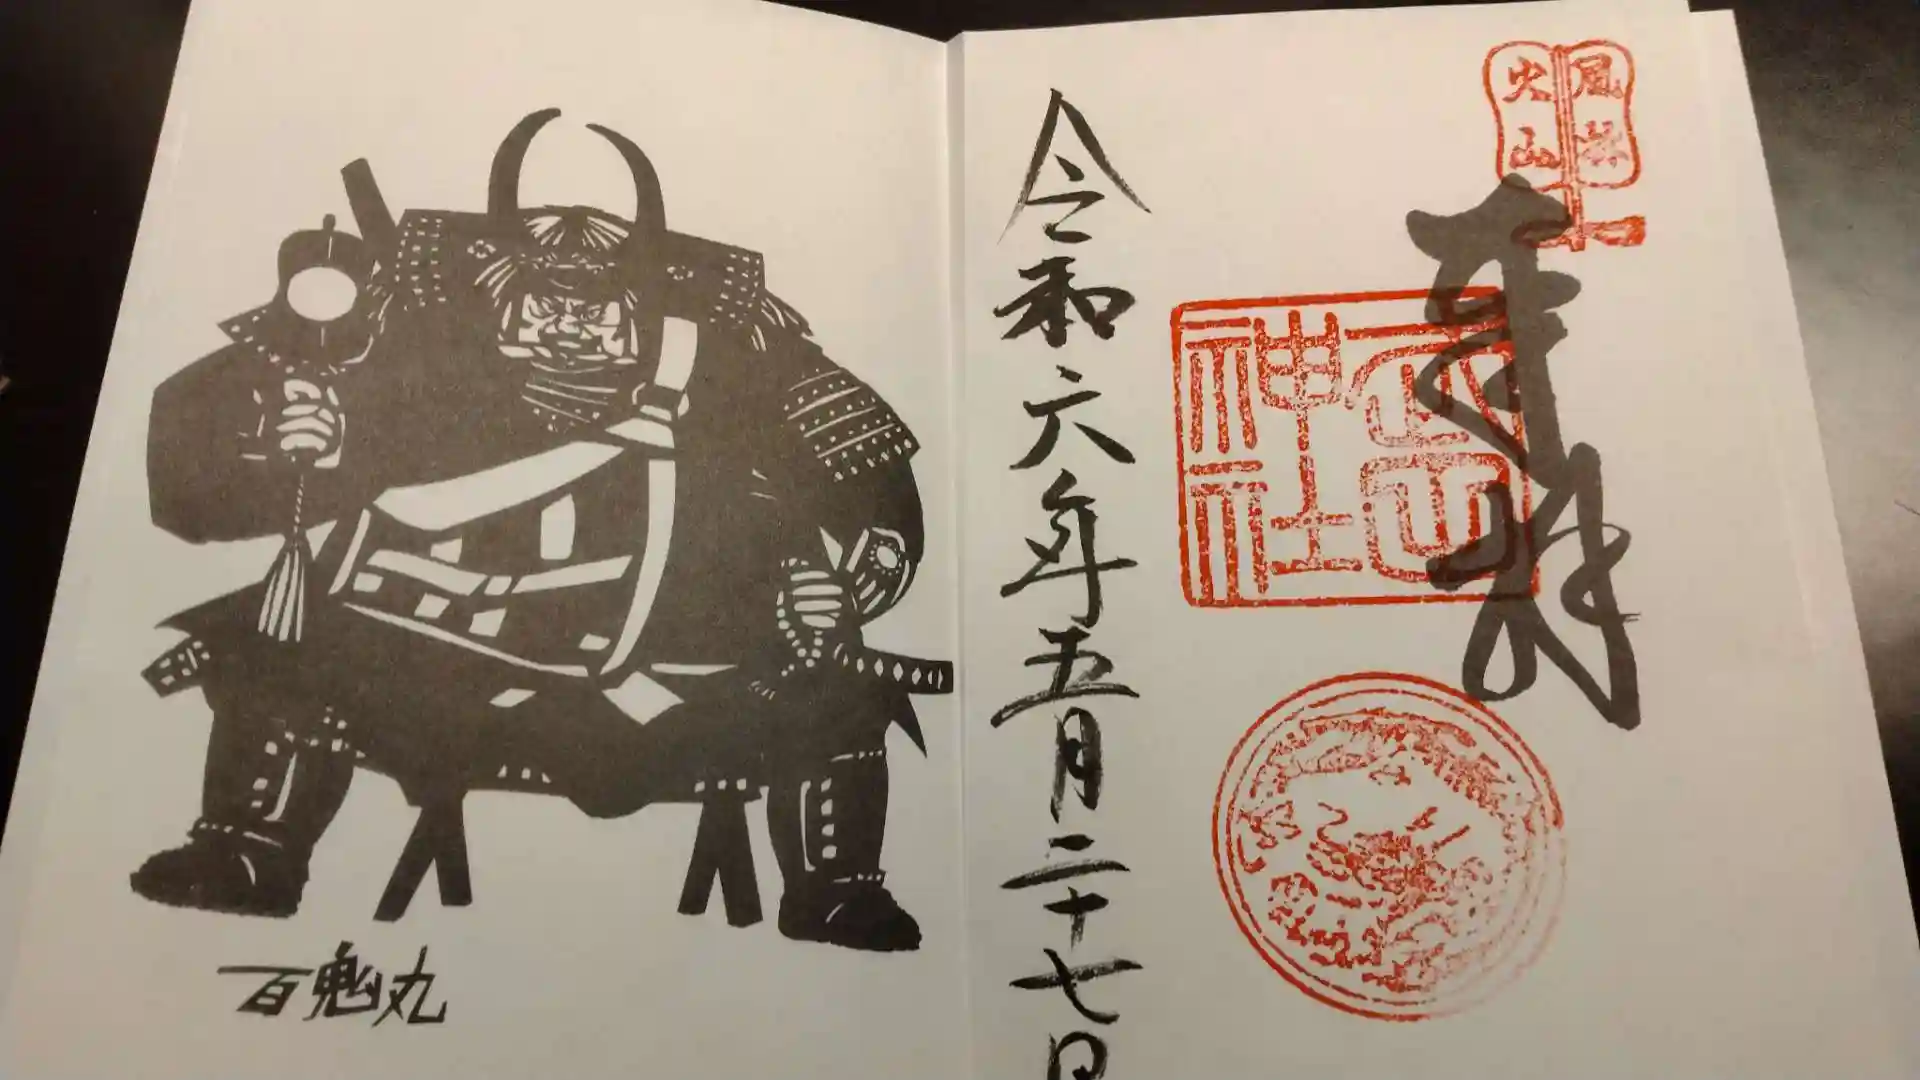 風林
火山
奉拝
武田
神社
令和六年五月二十七日
百鬼丸